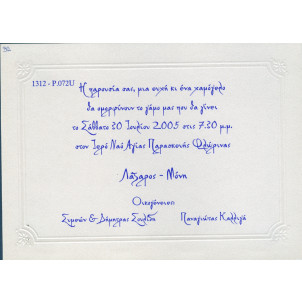 92
1312 - P.072U
Η παρουσία σας, μια ευχή κι ένα χαμόγελο
θα ομορφύνουν το γάμο μας που θα γίνει
το Σάββατο 30 Ιουλίου 2005 στις 7.30 μ.μ.
στον Ιερό Ναό Αγίας Παρασκευής Φλώρινας
Λάζαρος - Μόνη
Οικογένειες
Συμεών & Δήμητρας
Παναγιώτας Καλλιγά